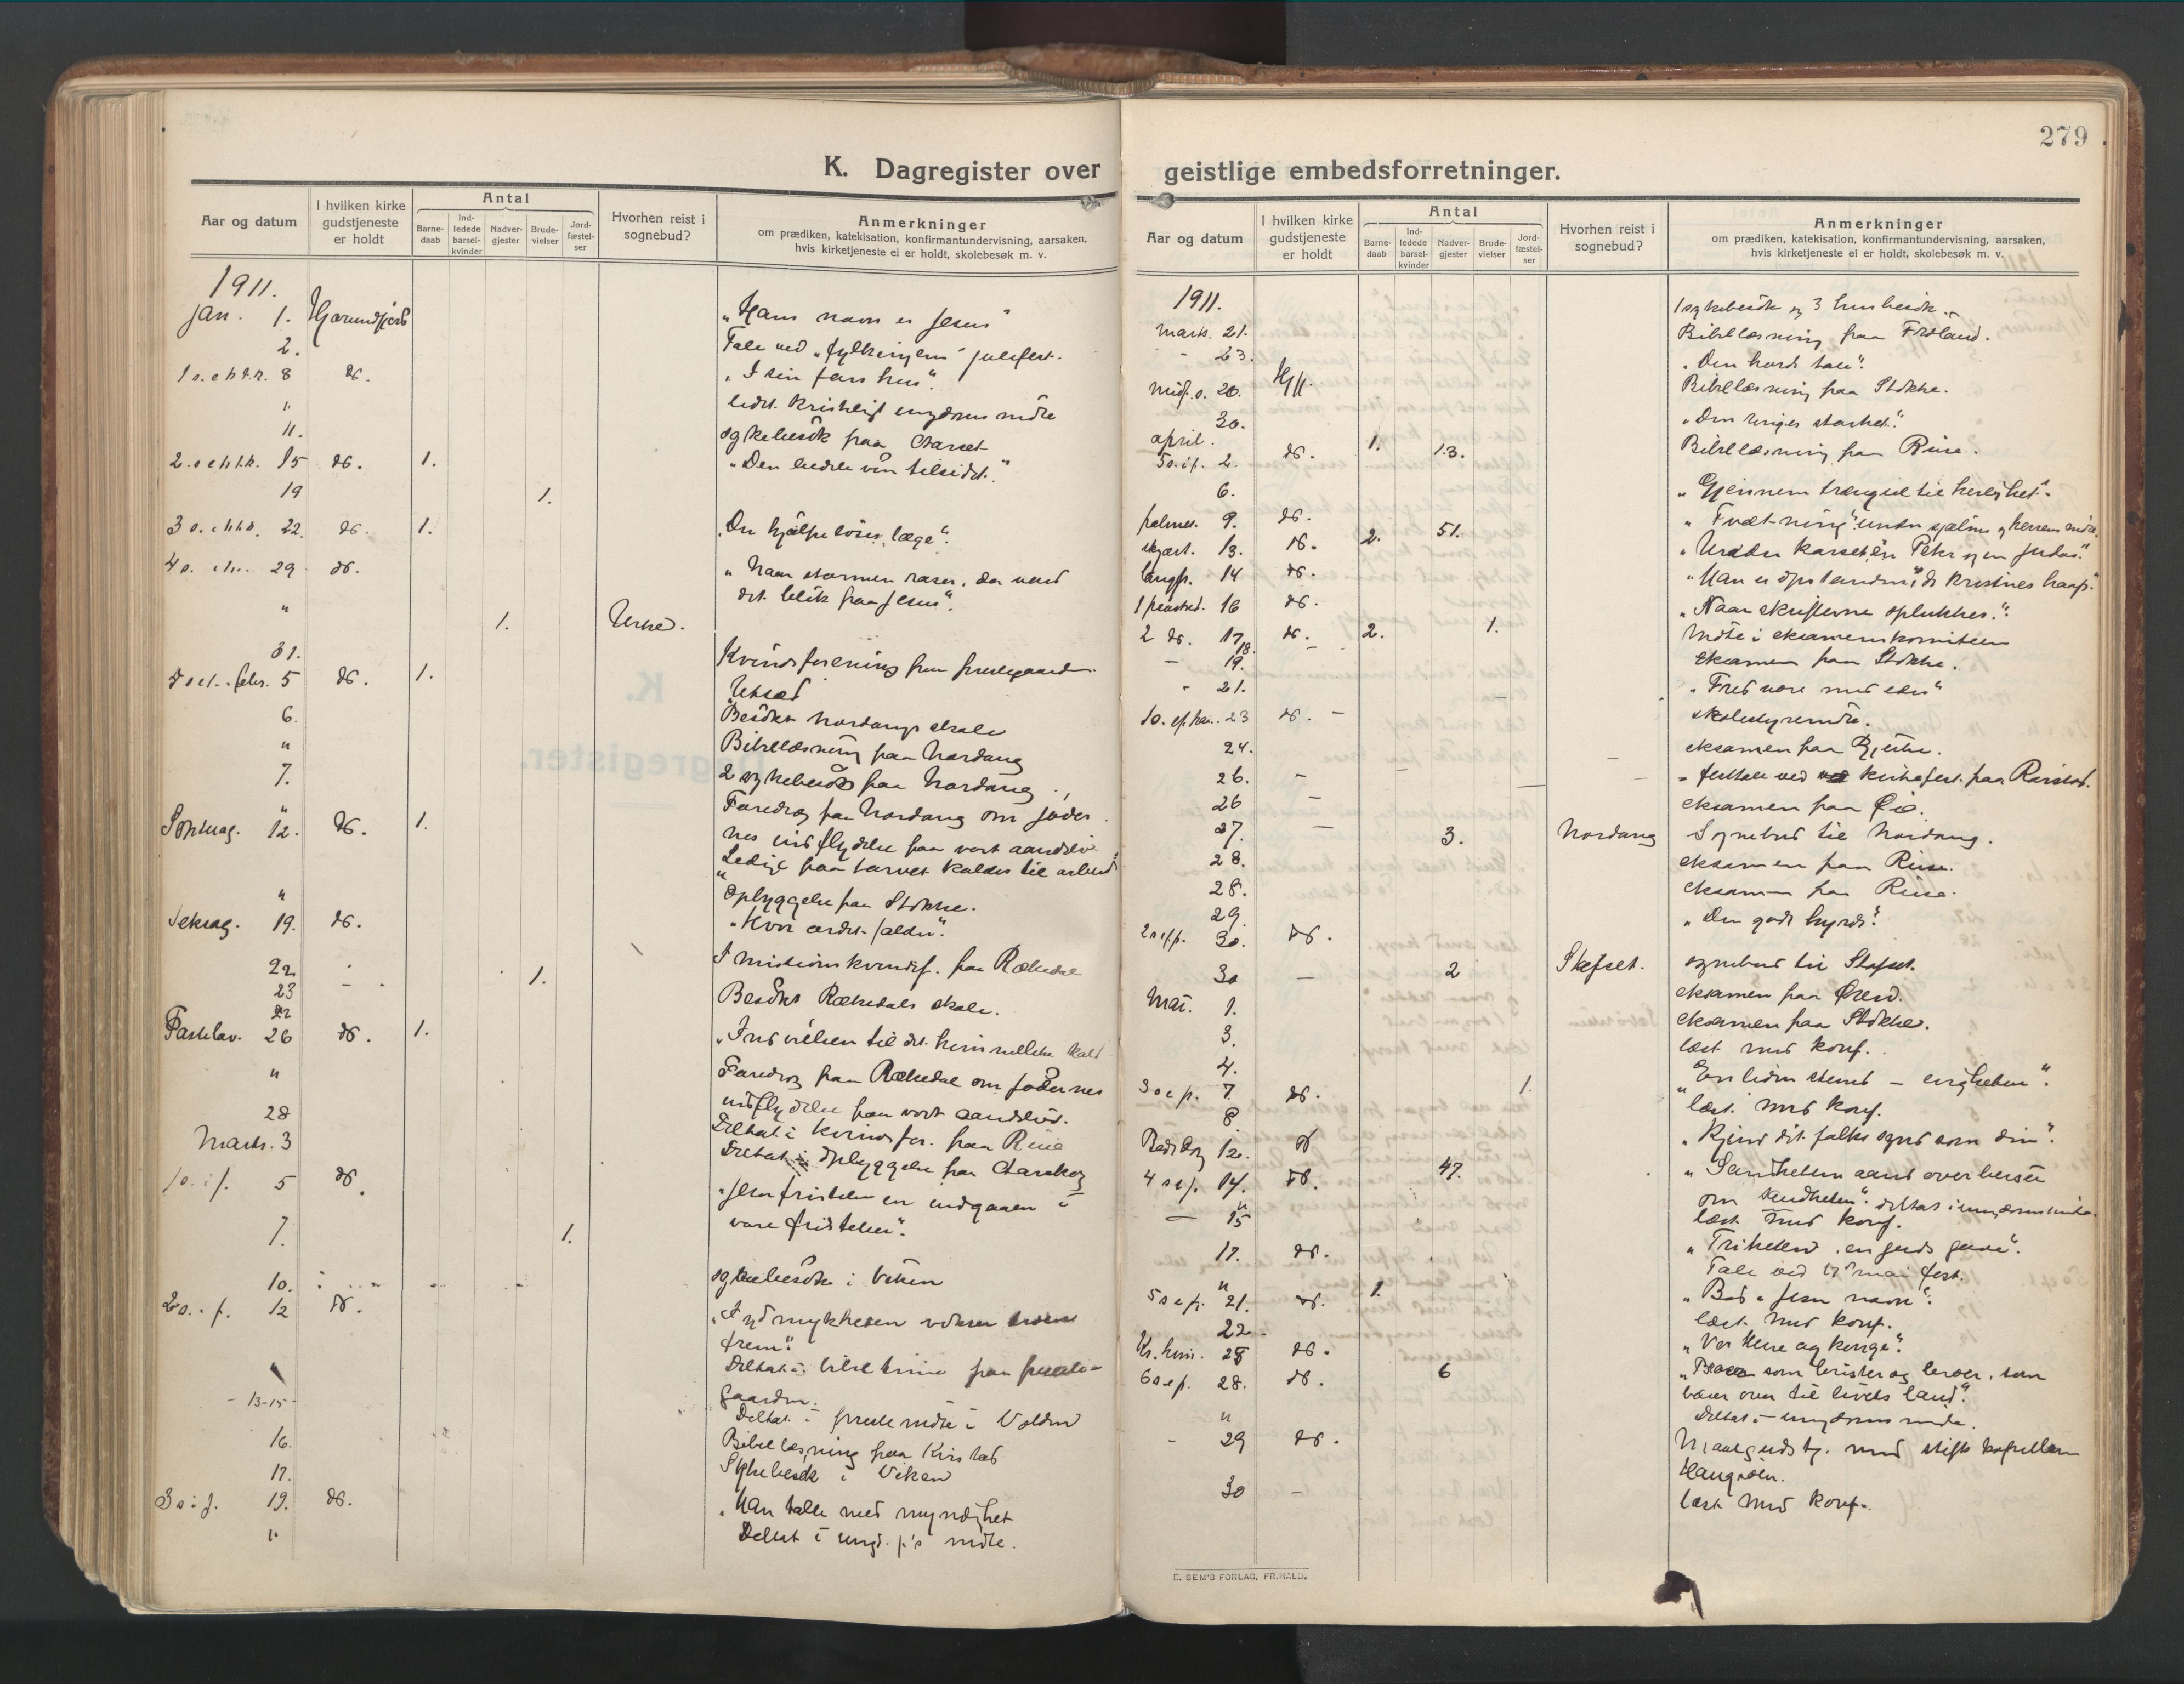 K. Dagregister over
Aar og datum
I hvilken kirke gudstjeneste er holdt
Antal
Barne-daab
Ind-ledede barsel-kvinder
Nadver-gjester
Brude-vielser
Jord-fæstel-ser
Hvorhen reist i sognebud?
Anmerkninger
om prædiken, katekisation, konfirmantundervisning, aarsaken,
hvis kirketjeneste ei er holdt, skolebesøk m. v.
1911.
Jan. 1. Hjørundfjord "Hans navn er Jesus"
2. Tale ved "fylkingens" julefest.
8 do. "I sin fars hus".
" ledet kristeligt ungdoms møte
11. sykebesøk paa
15 do. 1. "Den bedste vin tilsidst."
19 1.
22. do. 1. "Den hjælpeløses læge".
29 do. "Naar stormen raser, da vend
det blik paa Jesus".
" 1. Urke.
31. Kvindeforening paa prestegaarden
febr. 5 do. 1. Utsæd
6. Besøkt Nordangs skole
" Bibellæsning paa Nordang
7. 2 sykebesøk paa Nordang
" Foredrag paa Nordang om jøder
Sønduag. 12. do. 1. nes indflydelse paa vort aandsliv
"Ledige paa torvet kaldes til arbeid"
" Opbyggelse paa Stokke.
Seksag. 19. do. "Hvor ordet falder".
22 1. I missionskvindef. paa Rækedal
23 Besøkt Rækedals skole.
22
Fastelav. 26 do. 1. "Indvielsen til det himmelske kald
" Foredrag paa Rækedal om jødernes
indflydelse paa vort aandsliv.
28 Deltat i kvindefor. paa Riise
Marts. 3 Deltat i opbyggelse paa
5 do. "Jesu fristelse en indgaaen i
vore fristelser".
7. 1.
10. sykebesøk i Viken
2 s. i f. 12 do. "I ydmykheten vokser troen
frem".
Deltat i bibeltime paa preste-
gaarden.
- 13-15 - Deltat i prestemøte i Volden
16. Bibellæsning paa
17. Sykebesøk i Viken
3 s i f. 19. do. "Han talte med myndighet
" Deltat i ungd. f.'s møte.
279
geistlige embedsforretninger.
Aar og datum
I hvilken kirke gudstjeneste er holdt
Antal
Barne-daab
Ind-ledede barsel-kvinder
Nadver-gjester
Brude-vielser
Jord-fæstel-ser
Hvorhen reist i sognebud?
Anmerkninger
om prædiken, katekisation, konfirmantundervisning, aarsaken,
hvis kirketjeneste ei er holdt, skolebesøk m. v.
1911. 1 sykebesøk og 3 husbesøk.
Marts. 21. Bibellæsning paa
- 23. "Den harde tale".
Midf. s. 26. Hjf. Bibellæsning paa Stokke.
30. "Den ringes storhet".
april.
5 s. i f. 2. do. 1. 13. Bibellæsning paa Riise.
6. "Gjennem trængsel til herlighet".
palmes. 9. do.
skjært. 13. do. 2. 51. "Under korset: en Peter og en Judas".
langfr. 14 do. "Han er opstanden", de kristnes haap.
1 paasked. 16 do. "Naar skrifterne oplukkes".
2 do. 17 do. 2. 1. Møte i eksamenskomiteen
18.
- 19. eksamen paa Stokke.
- 21. "Fred være med eder"
23 do. - skolestyremøte.
24. eksamen paa
26. - festtale ved kirkefest paa
26 - eksamen paa Øie.
27. - 3. Nordang Sognebud til Nordang.
28. eksamen paa Riise.
28. eksamen paa Riise.
29. "Den gode hyrde".
30. do.
30 - 2 Skafset. sognebud til Skafset.
Mai. 1. eksamen paa
3. eksamen paa Stokke.
4. læst med konf.
7. do. 1. "En liden stund - evigheten".
8. læst med konf.
Bededag 12. do "Kjend dit folks synd som din".
14. do. 47. "Sandhetens aand overbeviser
" om sandheten". deltat i ungdomsmøte.
- 15 læst med konf.
17. do. "Friheten, en guds gave".
" Tale ved 17 mai fest.
21. do. 1. "Bed i Jesu navn".
22. læst med konf.
Kr. him. 25 do. "Vor Herre og konge".
28. do. 6 som brister og broer, som
bærer over til livets land".
" Deltat i ungdomsmøte.
- 29 do. Maalgudstj. med stiftskapellan
30 - læst med konf.
E. SEM'S FORLAG, FR.HALD.